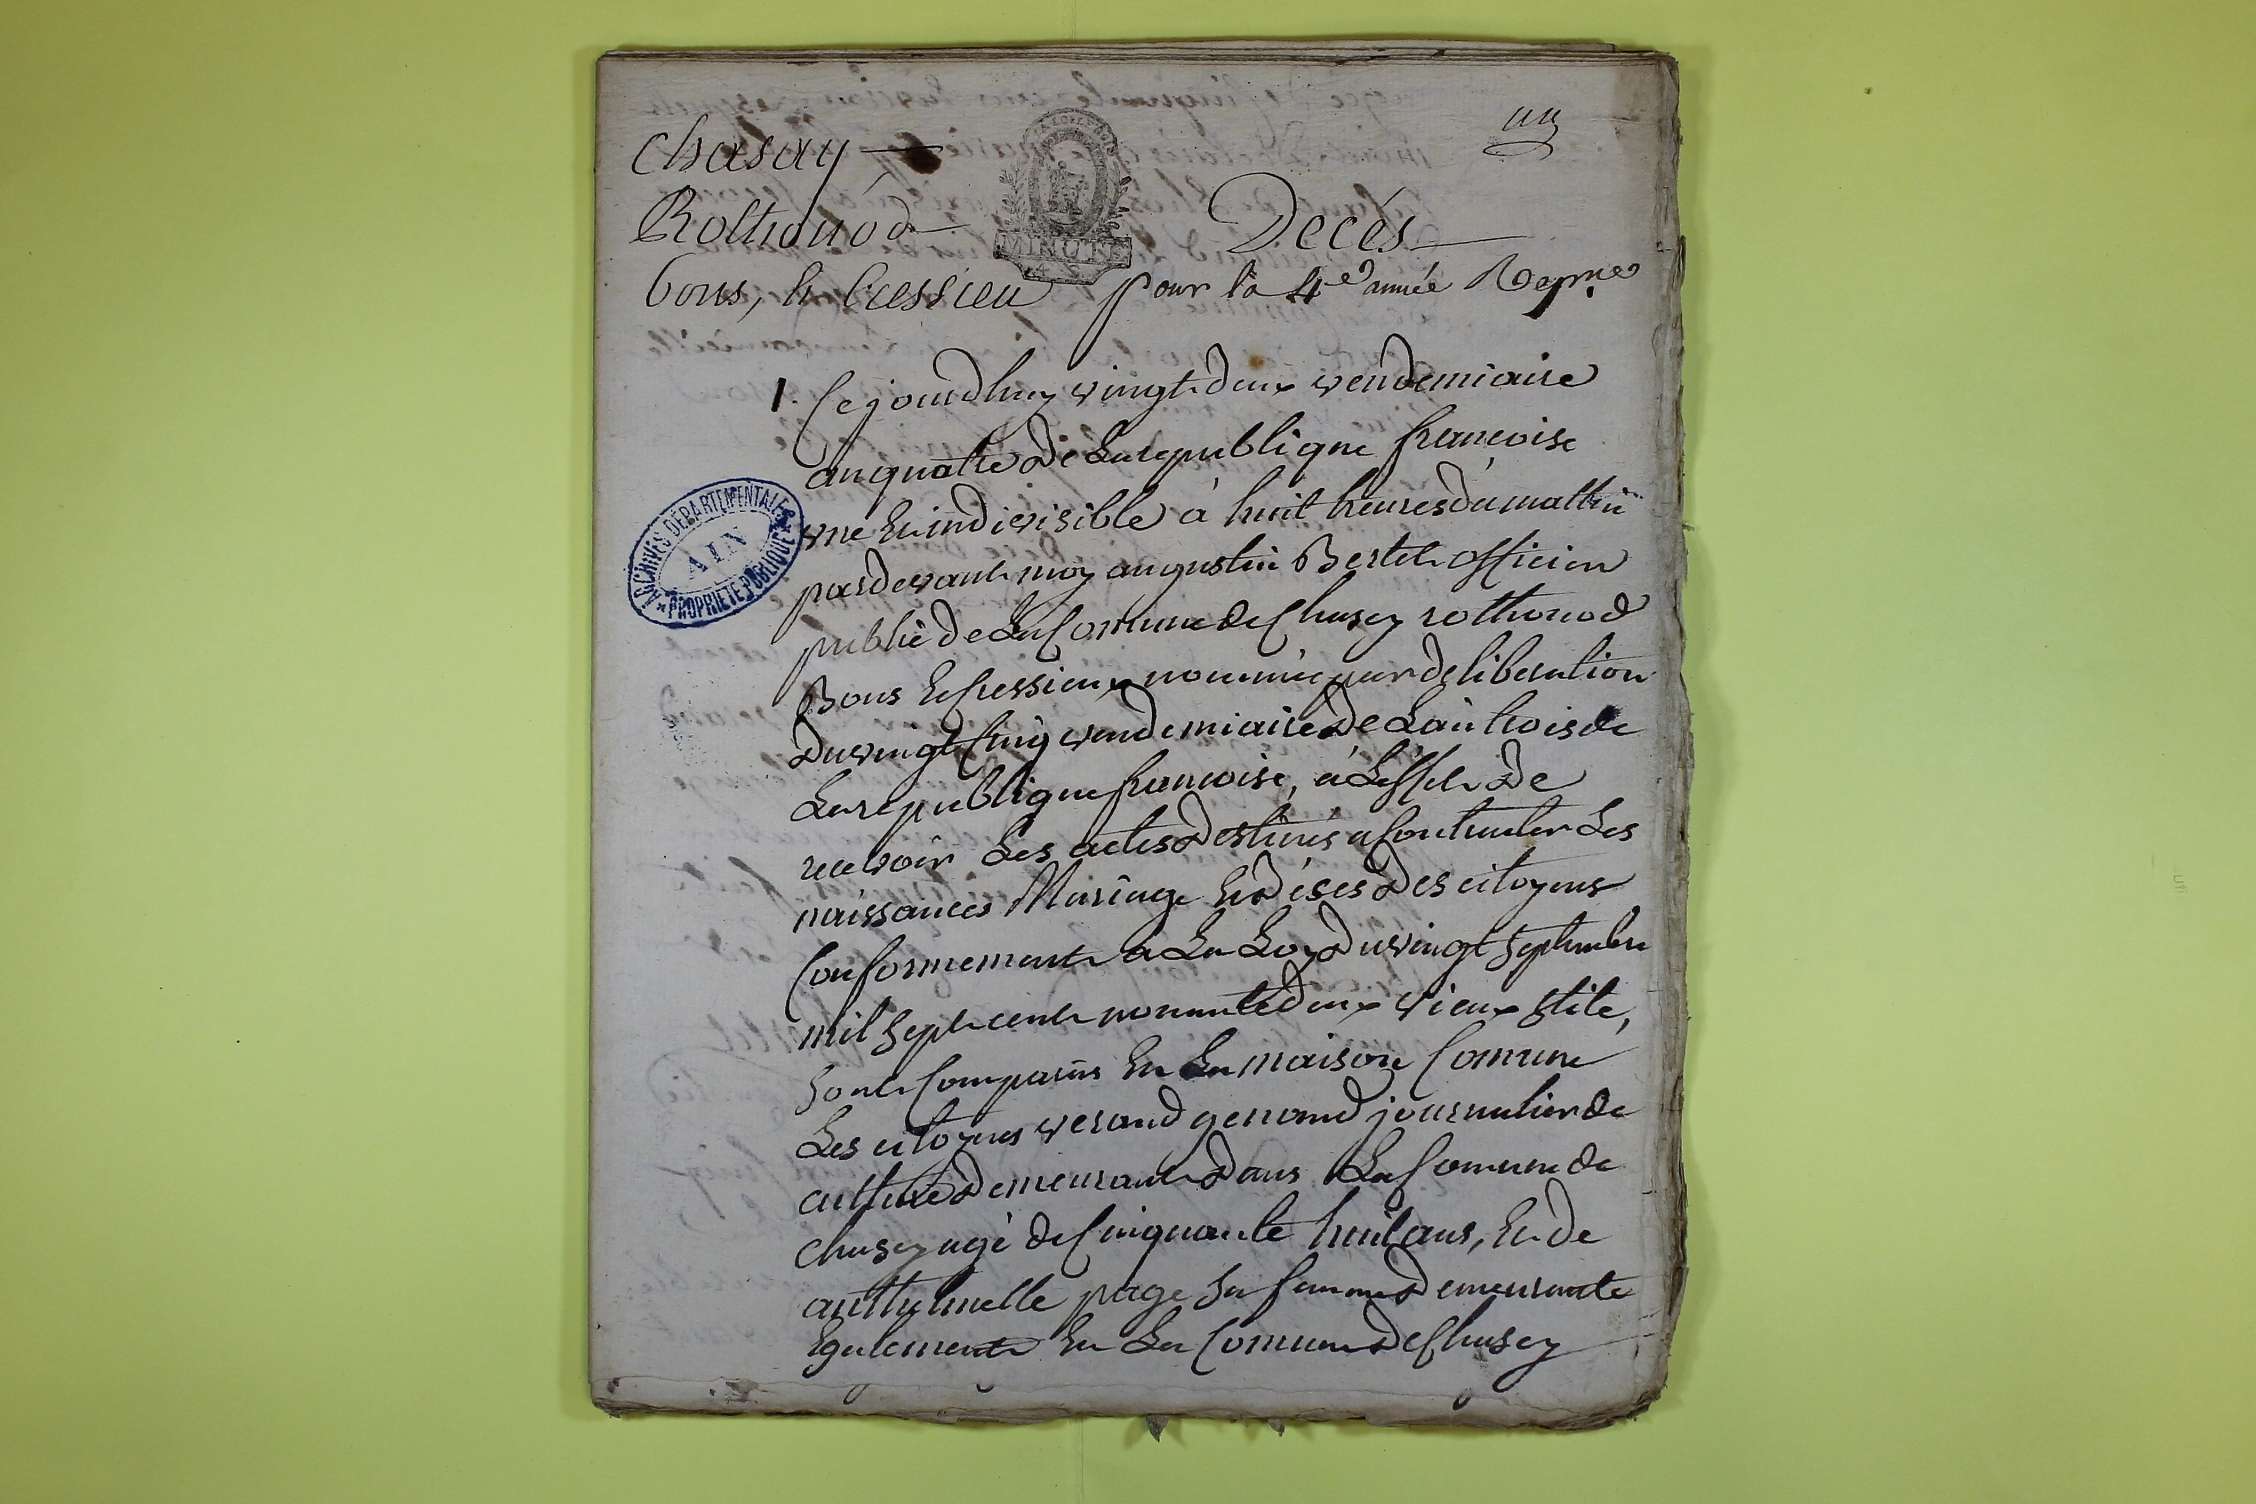 un
Chasay
Rothonod
bons, & Cressieu
MINUTE
Decés
pour la 4e année Repne
ARCHIVES DÉPARTEMENTALES
AIN
* PROPRIÉTÉ PUBLIQUE *
1. Cejourdhuy vingt deux vendemiaire
an quatre de La republique francoise
une Et indivisible à huit heures du mattin
pardevant moy augustin Bertet officier
public de La Comune de Chasey rothonod
Bons Et Cressieux nommé par deliberation
du vingt Cinq vendemiaire de L'an trois de
La republique francoise, à L'effet de
recevoir Les actes destinés a Constater Les
naissances Mariage Et déses des citoyens
Conformement a La Loy du vingt Septembre
mil Sept cent nonante deux vieux Stile,
Sont Comparus En La maison Comune
Les citoyens verand genond journalier de
culture demeurant dans La Comune de
Chasey agé de Cinquante huit ans, Et de
anthelmette page Sa femme demeurante
Egalement En La Comune de Chasey